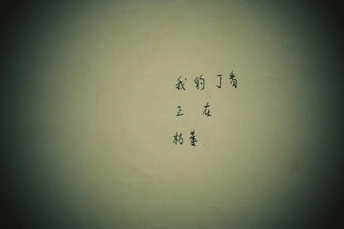 我的丁香
正在
枯萎